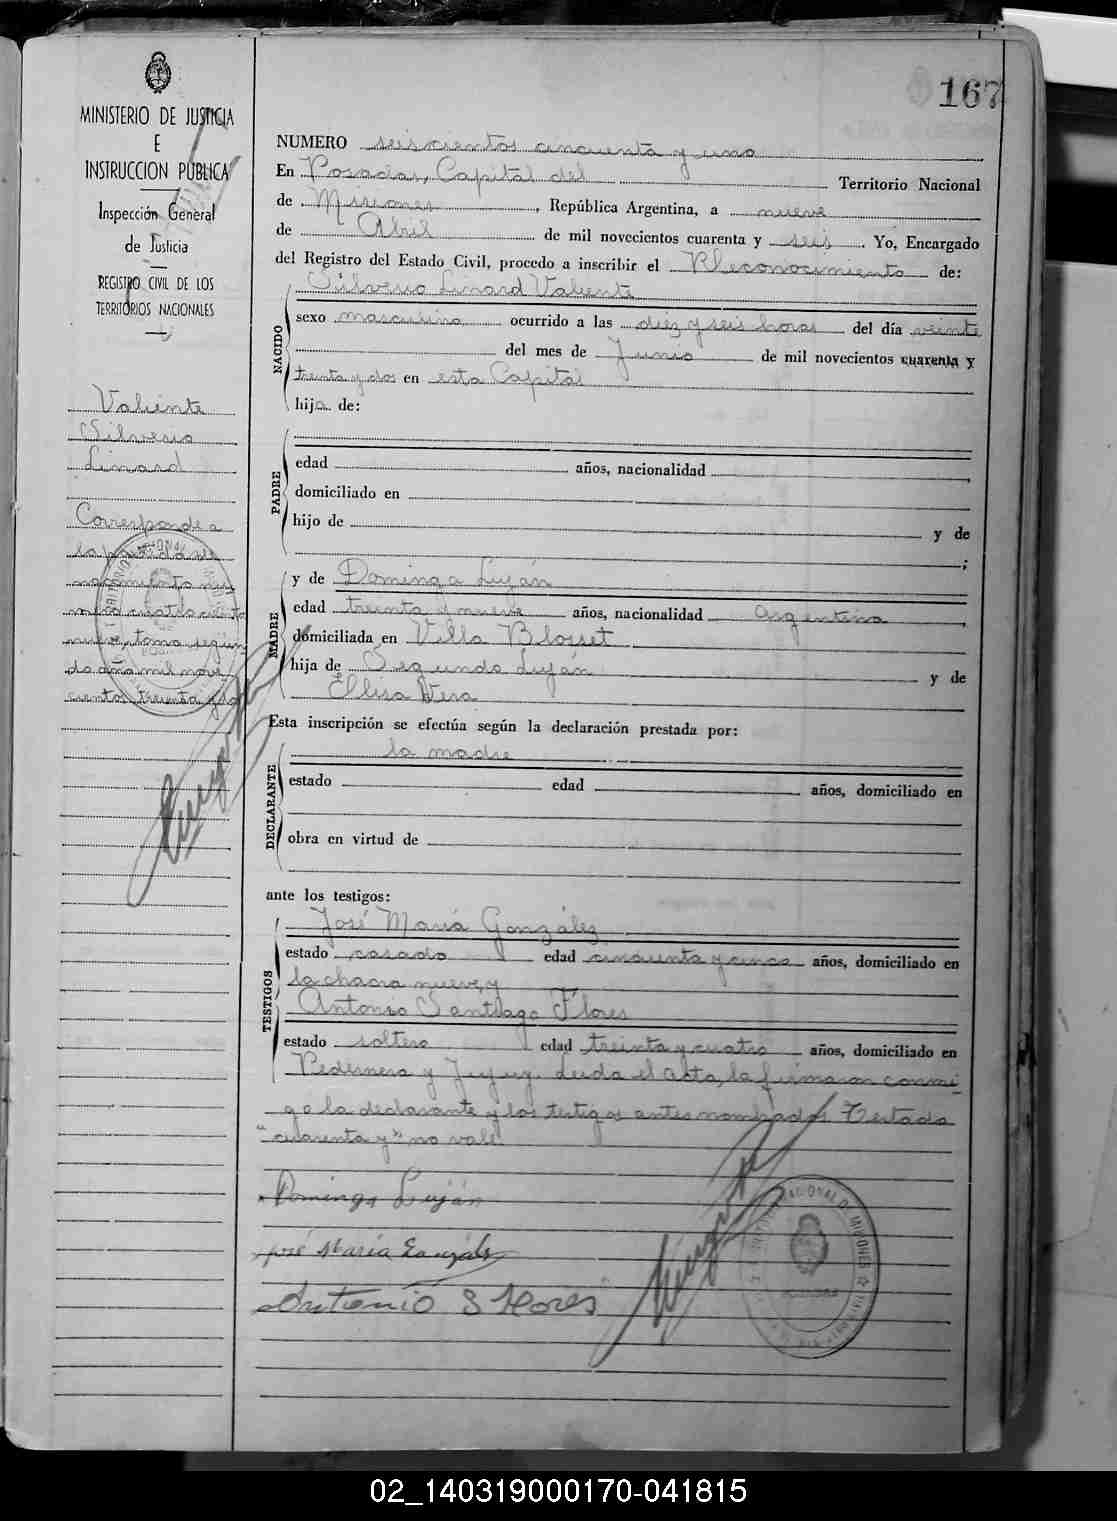 167
MINISTERIO DE JUSTICIA
E
INSTRUCCION PÚBLICA
Inspección General
de Justicia
REGISTRO CIVIL DE LOS
TERRITORIOS NACIONALES
Valiente
Silverio
Linard
Corresponde a
la partida de
nacimiento nú
mero cuatrociento
nueve, tomo segun
do año mil nove
cientos treinta y dos
NUMERO seiscientos cincuenta y uno
En Posadas, Capital del Territorio Nacional
de Misiones, República Argentina, a nueve
de Abril de mil novecientos cuarenta y seis. Yo, Encargado
del Registro del Estado Civil, procedo a inscribir el Reconocimiento de:
Silverio Linard Valiente
NACIDO
sexo masculino ocurrido a las diez y seis horas del día veinte
del mes de Junio de mil novecientos cuarenta y
treinta y dos en esta Capital
hijo de:
PADRE
edad años, nacionalidad
domiciliado en
hijo de y de
;
MADRE
y de Dominga Luján
edad treinta y nueve años, nacionalidad Argentina
domiciliada en Villa Blosset
hija de Segundo Luján y de
Elisa Vera
Esta inscripción se efectúa según la declaración prestada por:
la madre
DECLARANTE
estado edad años, domiciliado en
obra en virtud de
ante los testigos:
José María González
TESTIGOS
estado casado edad cincuenta y cinco años, domiciliado en
la chacra nueve, y
Antonio Santiago Flores
estado soltero edad treinta y cuatro años, domiciliado en
Pedernera y Jujuy. Leída el acta, la firmaron conmi
go la declarante y los testigos antes nombrados. Testado
"cuarenta y" no vale
Dominga Luján
José María Gonzáles
Antonio S Flores
02_140319000170-041815